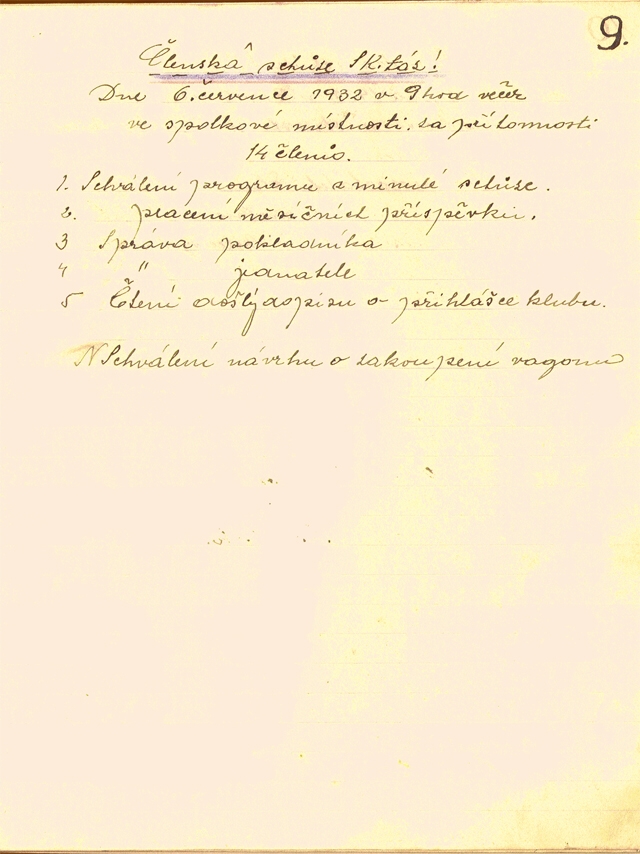 9.
Členská schůze SK. Ráz!
Dne 6. července 1932 v 9 hod večer
ve spolkové místnosti. za přítomnosti
14 členů.
1. Schválení programu z minulé schůze.
2. placení měsíčních příspěvků.
3 Správa pokladníka
4 " jednatele
5 Čtení došlý dopisu o přihlášce klubu.
N Schválení návrhu o zakoupení vagonu